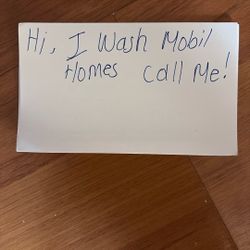 Hi, I Wash Mobil
Homes Call Me!